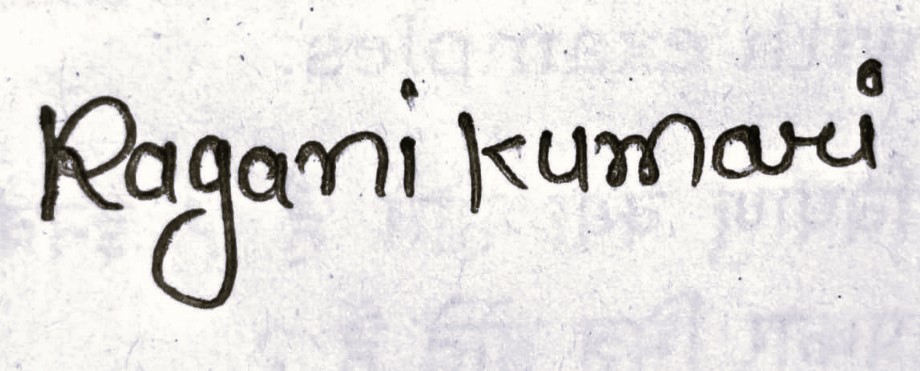 Ragani kumari